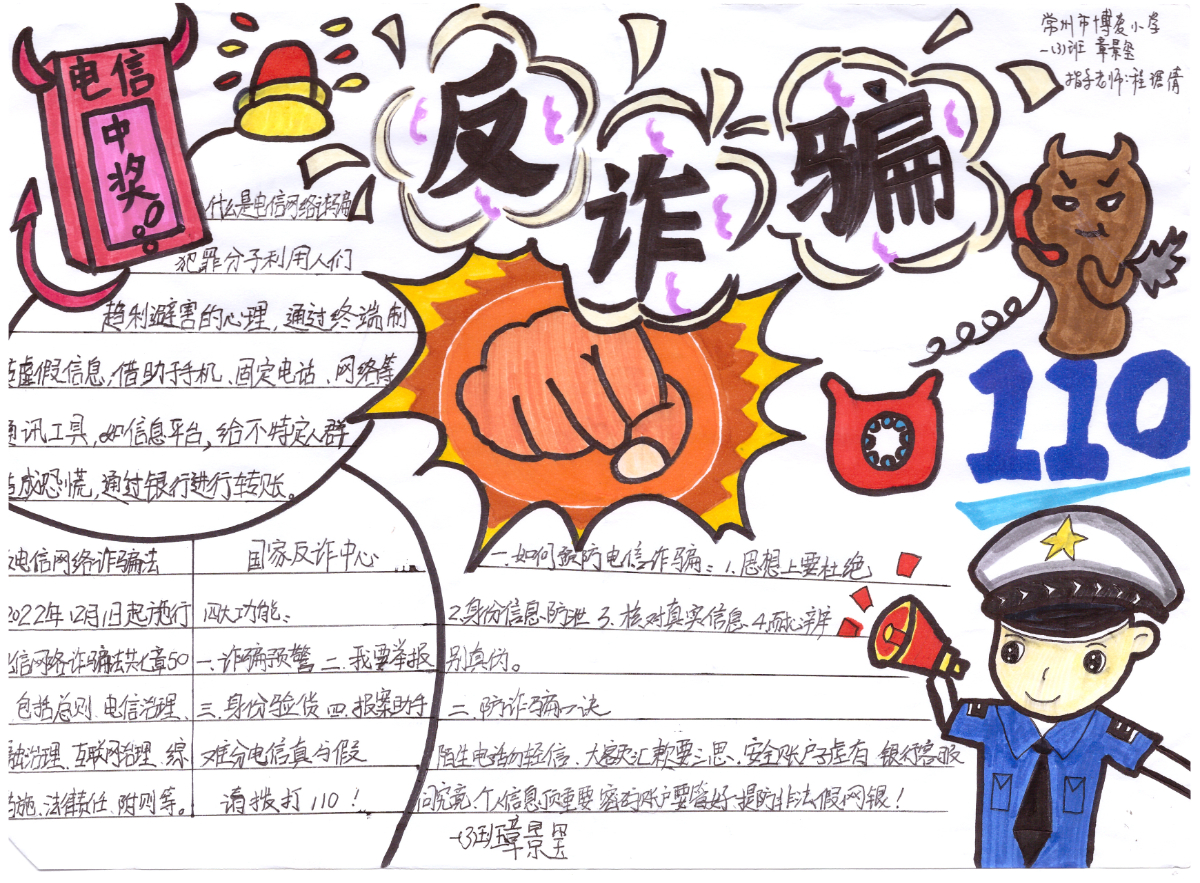 反诈骗
常州市博爱小学
一(3)班 章景
指导老师:程珺倩
电信
中奖
110
什么是电信网络诈骗
犯罪分子利用人们
趋利避害的心理,通过终端制
造虚假信息,借助于手机、固定电话、网络等
通讯工具,如信息平台,给不特定人群
造成恐慌,通过银行进行转账。
电信网络诈骗法
2022年12月1日起施行
信网络诈骗法共七章50
包括总则、电信治理、
融治理、互联网治理、综
措施、法律责任、附则等。
国家反诈中心
四大功能:
一.诈骗预警 二.我要举报
三.身份验侦 四.报案助手
难分电信真与假
请拨打110!
一.如何预防电信诈骗:1.思想上要杜绝
2.身份信息防泄 3.核对真实信息 4.耐心辨
别真伪。
二.防诈骗一诀
陌生电话勿轻信、大额汇款要三思、安全账户子虚有 银行客服
问究竟、个人信息顶重要 密码账户要管好 提防非法假网银!
一(3)班章景